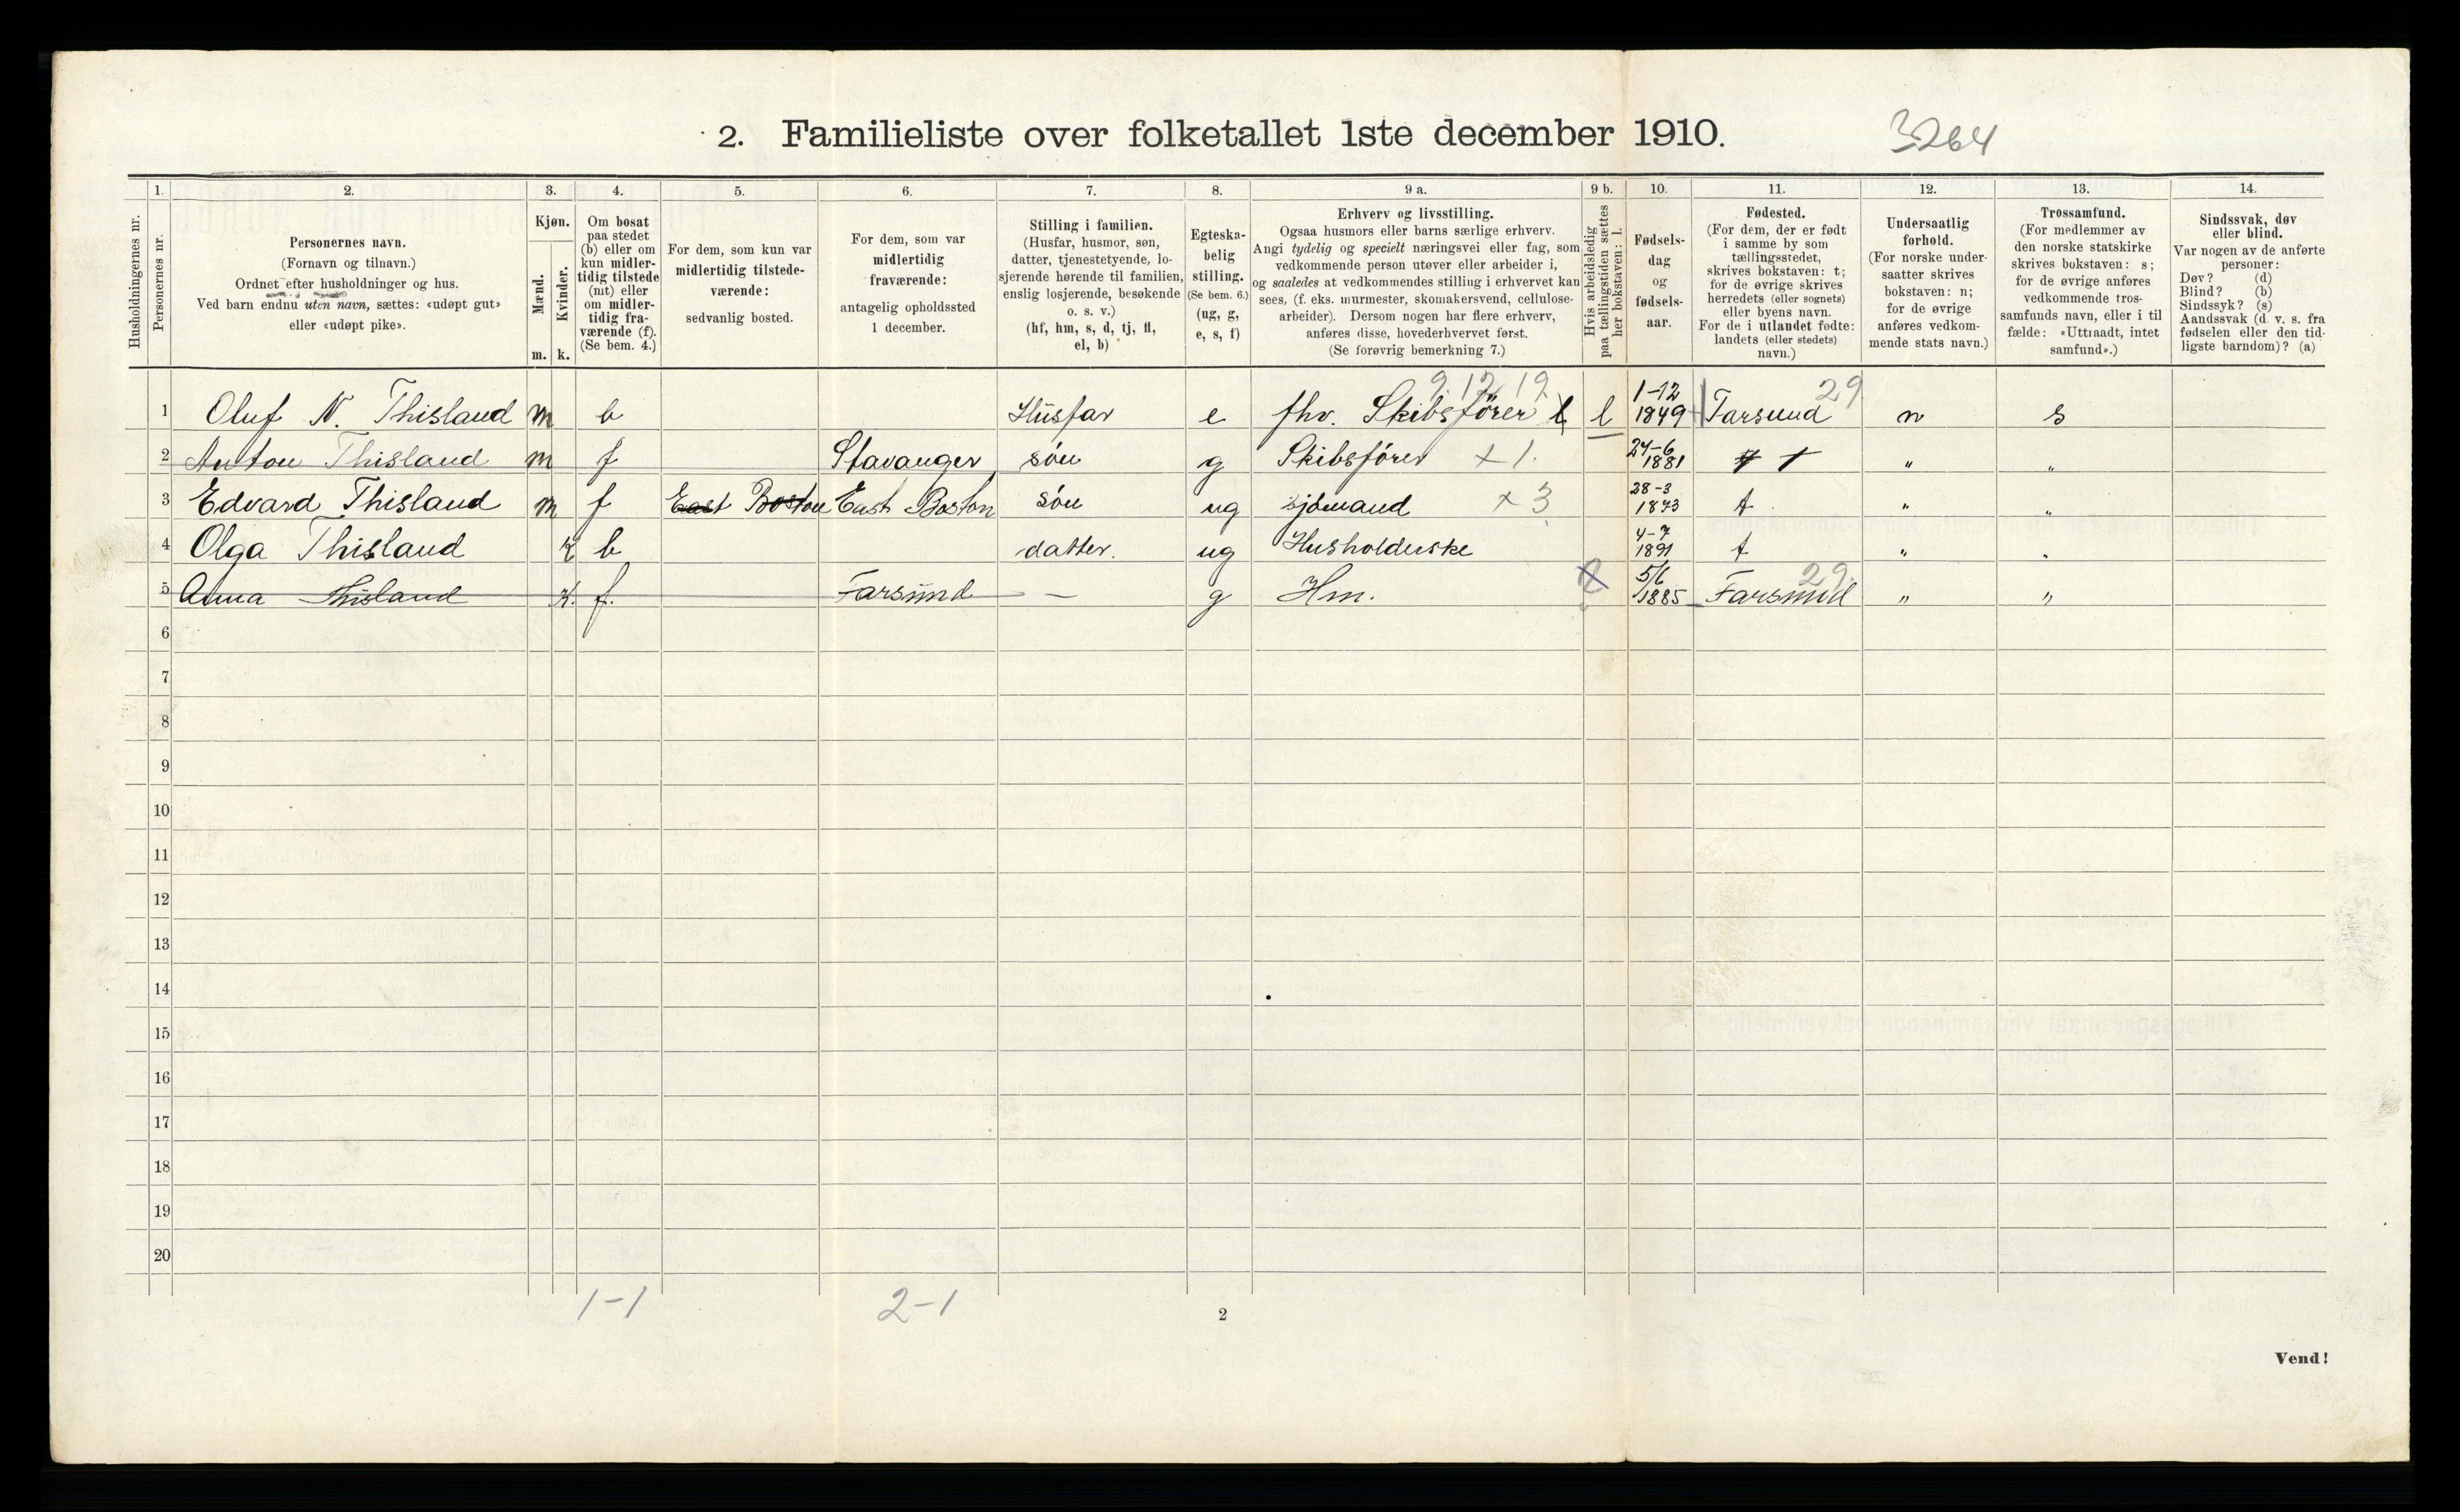 2. Familieliste over folketallet 1ste december 1910.
3264
Husholdningernes nr.
1.
Personernes nr.
2.
Personernes navn.
(Fornavn og tilnavn.)
Ordnet efter husholdninger og hus.
Ved barn endnu uten navn, sættes: «udøpt gut»
eller «udøpt pike».
3.
Kjøn.
Mænd.
Kvinder.
m. k.
4.
Om bosat
paa stedet
(b) eller om
kun midler-
tidig tilstede
(mt) eller
om midler-
tidig fra-
værende (f).
(Se bem. 4.)
5.
For dem, som kun var
midlertidig tilstede-
værende:
sedvanlig bosted.
6.
For dem, som var
midlertidig
fraværende:
antagelig opholdssted
1 december.
7.
Stilling i familien.
(Husfar, husmor, søn,
datter, tjenestetyende, lo-
sjerende hørende til familien,
enslig losjerende, besøkende
o. s. v.)
(hf, hm, s, d, tj, fl,
el, b)
8.
Egteska-
belig
stilling.
(Se bem. 6.)
(ug, g,
e, s, f)
9 a.
Erhverv og livsstilling.
Ogsaa husmors eller barns særlige erhverv.
Angi tydelig og specielt næringsvei eller fag, som
vedkommende person utøver eller arbeider i,
og saaledes at vedkommendes stilling i erhvervet kan
sees, (f. eks. murmester, skomakersvend, cellulose-
arbeider). Dersom nogen har flere erhverv,
anføres disse, hovederhvervet først.
(Se forøvrig bemerkning 7.)
9 b.
Hvis arbeidsledig
paa tællingstiden sættes
her bokstaven: l.
10.
Fødsels-
dag
og
fødsels-
aar.
11.
Fødested.
(For dem, der er født
i samme by som
tællingsstedet,
skrives bokstaven: t;
for de øvrige skrives
herredets (eller sognets)
eller byens navn.
For de i utlandet fødte:
landets (eller stedets)
navn.)
12.
Undersaatlig
forhold.
(For norske under-
saatter skrives
bokstaven: n;
for de øvrige
anføres vedkom-
mende stats navn.)
13.
Trossamfund.
(For medlemmer av
den norske statskirke
skrives bokstaven: s;
for de øvrige anføres
vedkommende tros-
samfunds navn, eller i til
fælde: «Uttraadt, intet
samfund».)
14.
Sindssvak, døv
eller blind.
Var nogen av de anførte
personer:
Døv? (d)
Blind? (b)
Sindssyk? (s)
Aandssvak (d. v. s. fra
fødselen eller den tid-
ligste barndom)? (a)
1 Oluf N. Thisland m b Husfar e fhv. Skibsfører l l 1-12 1849 Farsund 29 n s
2 Anton Thisland m f Stavanger søn g Skibsfører x 1. 24-6 1881 t t " "
3 Edvard Thisland m f East Boston East Boston søn ug sjømand x 3 28-3 1873 t " "
4 Olga Thisland K b datter. ug Husholderske 4-7 1891 t " "
5 Anna Thisland K. f. Farsund — g Hm. 5/6 1885 Farsund 29 " "
6
7
8
9
10
11
12
13
14
15
16
17
18
19
20
1-1 2-1
2
Vend!